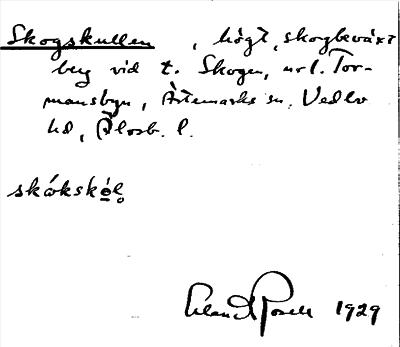 Skogskullen , högt, skogbeväxt
berg vid t. Skogen, url. Tor-
mansbyn, Ärtemarks sn, Vedbo
hd, Älvsb. l.
skókskól
Erland Rosell 1929